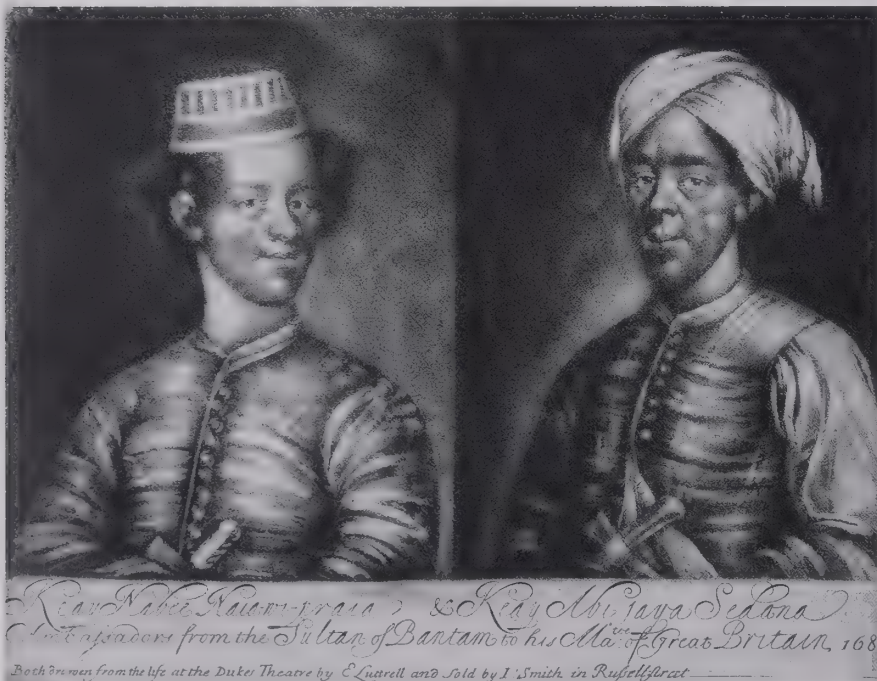 Keay Nabee Naia-wi-praia & Keay Abi jaya Sedana
Embassadors from the Sultan of Bantam to his Ma.tie of Great Britain 168
Both drawen from the life at the Dukes Theatre by E Luttrell and sold by I Smith in Russell street